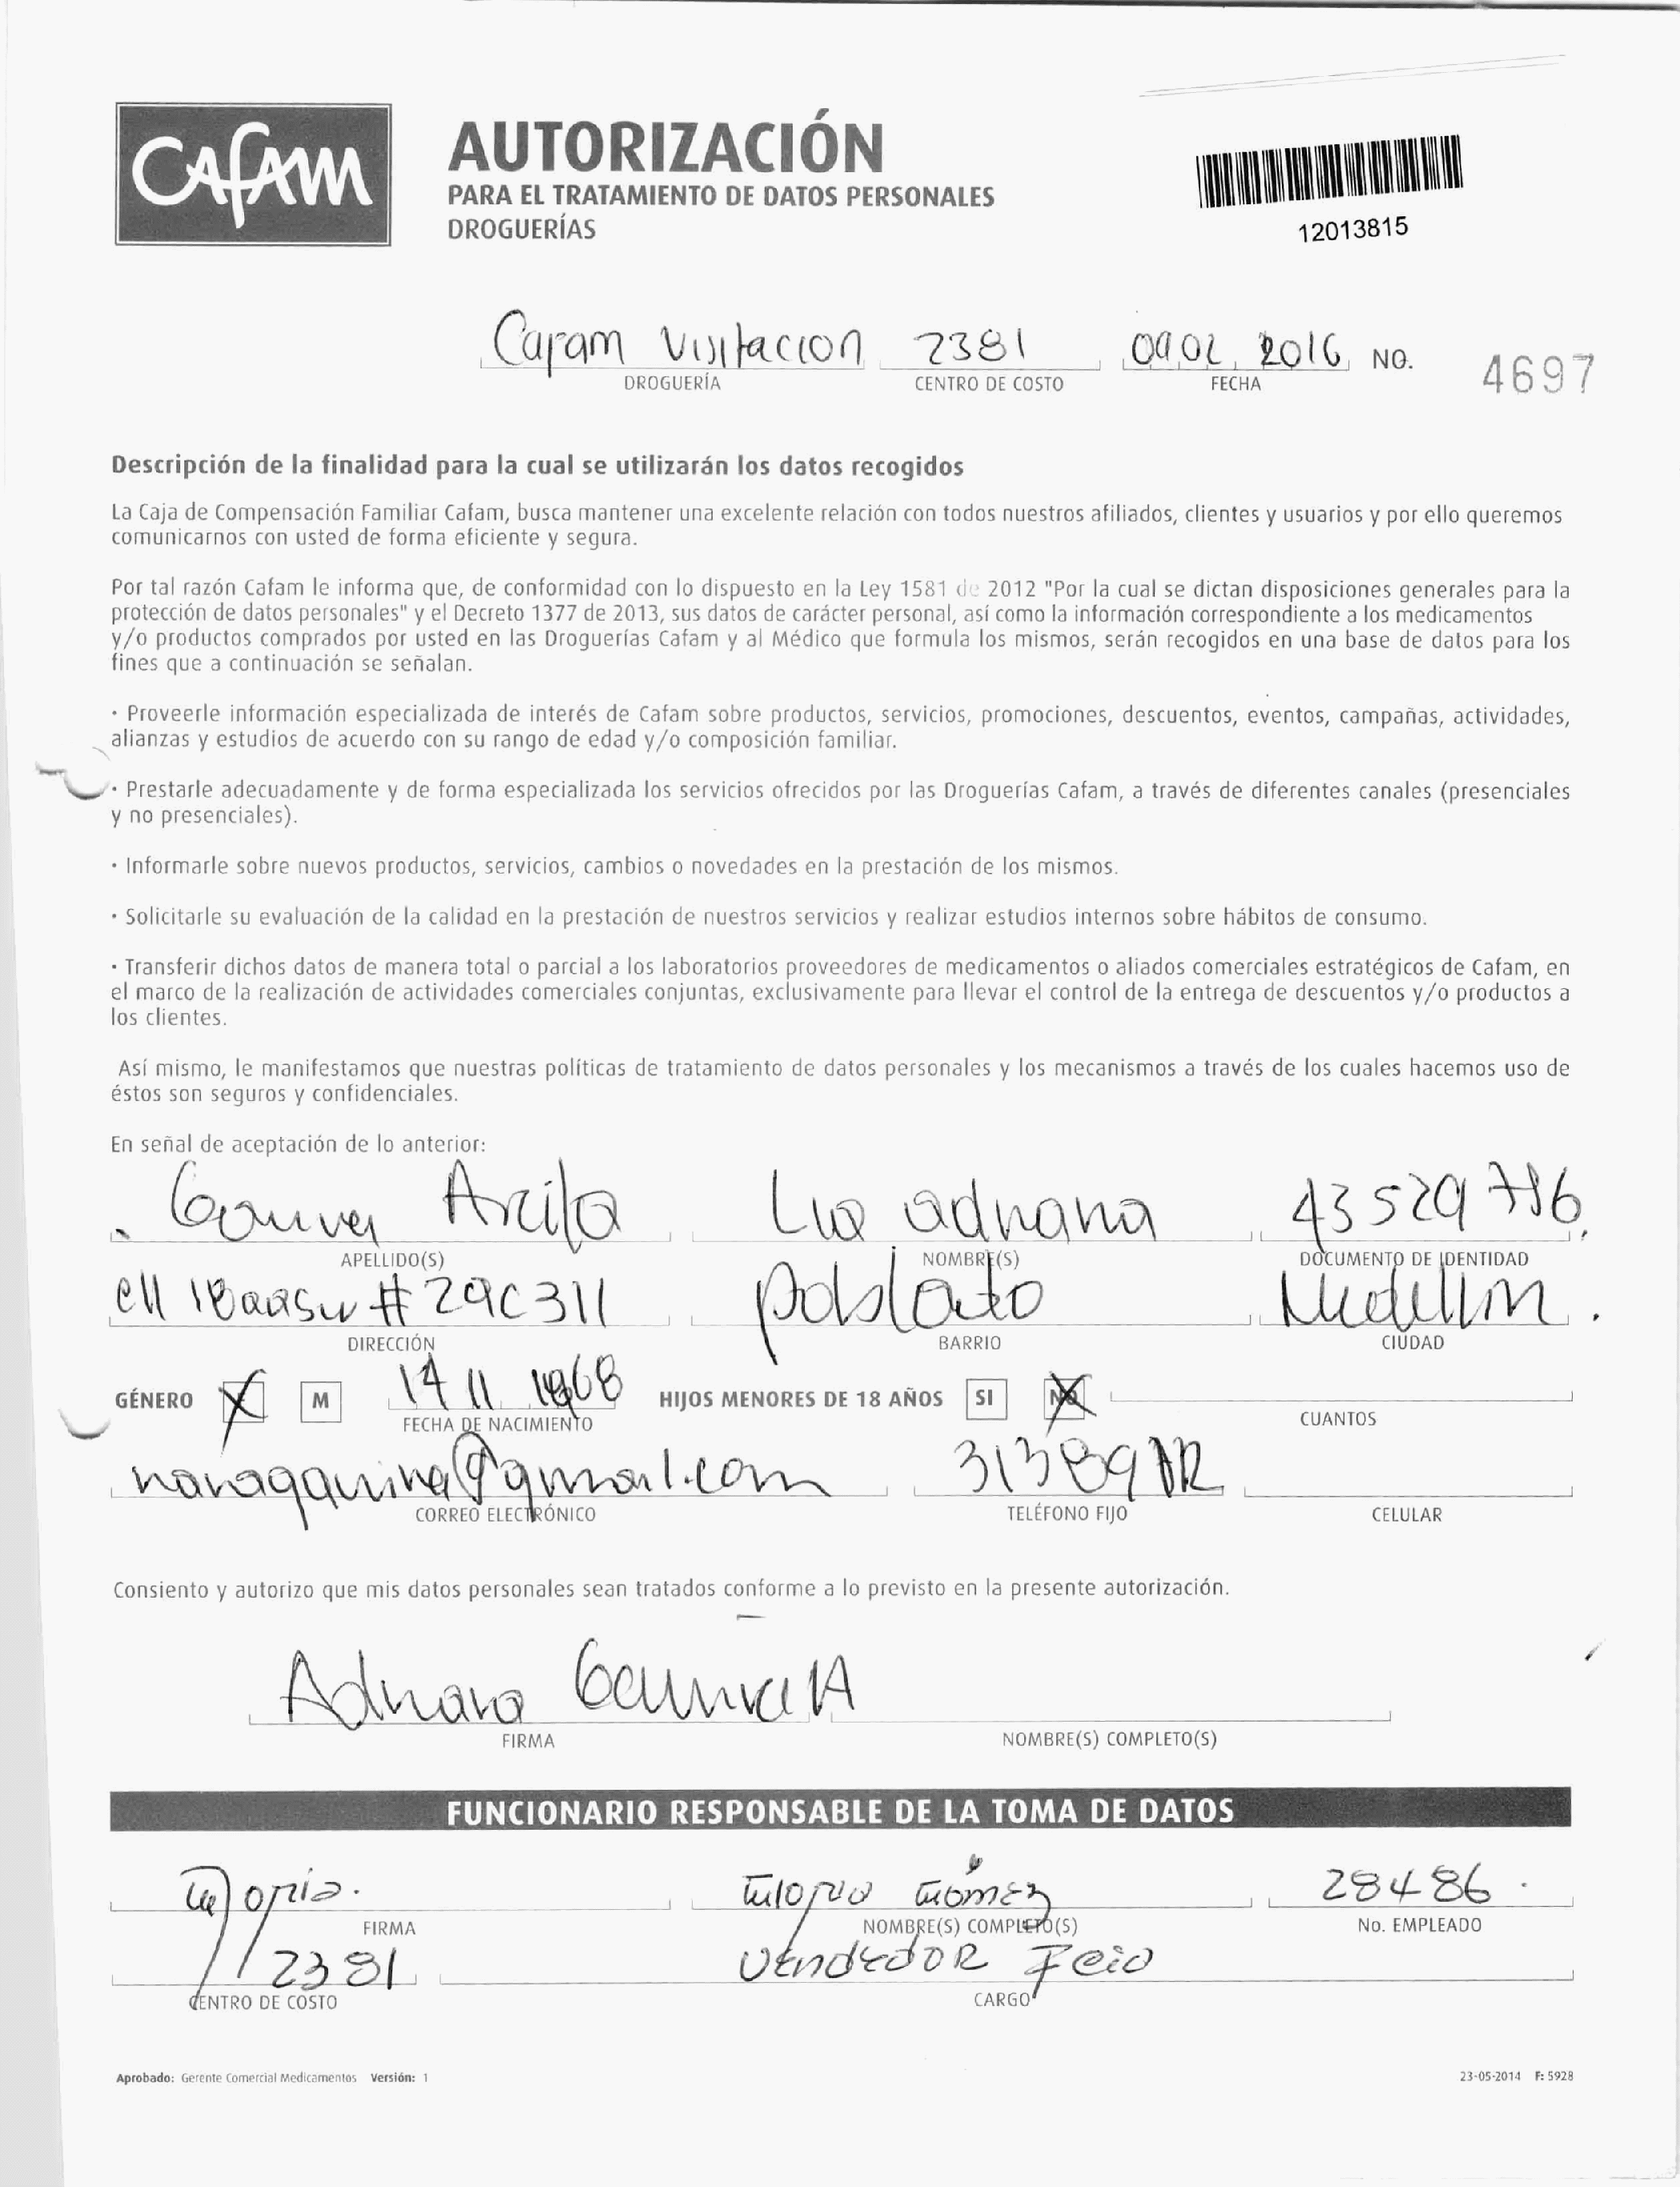 Cafam
AUTORIZACIÓN
PARA EL TRATAMIENTO DE DATOS PERSONALES
DROGUERÍAS
12013815
Cafam Visitacion 2381 09 02 2016 NO. 4697
DROGUERÍA CENTRO DE COSTO FECHA
Descripción de la finalidad para la cual se utilizarán los datos recogidos
La Caja de Compensación Familiar Cafam, busca mantener una excelente relación con todos nuestros afiliados, clientes y usuarios y por ello queremos
comunicarnos con usted de forma eficiente y segura.
Por tal razón Cafam le informa que, de conformidad con lo dispuesto en la Ley 1581 de 2012 "Por la cual se dictan disposiciones generales para la
protección de datos personales" y el Decreto 1377 de 2013, sus datos de carácter personal, así como la información correspondiente a los medicamentos
y/o productos comprados por usted en las Droguerías Cafam y al Médico que formula los mismos, serán recogidos en una base de datos para los
fines que a continuación se señalan.
· Proveerle información especializada de interés de Cafam sobre productos, servicios, promociones, descuentos, eventos, campañas, actividades,
alianzas y estudios de acuerdo con su rango de edad y/o composición familiar.
· Prestarle adecuadamente y de forma especializada los servicios ofrecidos por las Droguerías Cafam, a través de diferentes canales (presenciales
y no presenciales).
· Informarle sobre nuevos productos, servicios, cambios o novedades en la prestación de los mismos.
· Solicitarle su evaluación de la calidad en la prestación de nuestros servicios y realizar estudios internos sobre hábitos de consumo.
· Transferir dichos datos de manera total o parcial a los laboratorios proveedores de medicamentos o aliados comerciales estratégicos de Cafam, en
el marco de la realización de actividades comerciales conjuntas, exclusivamente para llevar el control de la entrega de descuentos y/o productos a
los clientes.
Así mismo, le manifestamos que nuestras políticas de tratamiento de datos personales y los mecanismos a través de los cuales hacemos uso de
éstos son seguros y confidenciales.
En señal de aceptación de lo anterior:
Arcila adriana
APELLIDO(S) NOMBRE(S) DOCUMENTO DE IDENTIDAD
# 29C311 poblado Medellin.
DIRECCIÓN BARRIO CIUDAD
GÉNERO M 14 11 1968 HIJOS MENORES DE 18 AÑOS SI NO
FECHA DE NACIMIENTO CUANTOS
CORREO ELECTRÓNICO TELÉFONO FIJO CELULAR
Consiento y autorizo que mis datos personales sean tratados conforme a lo previsto en la presente autorización.
Adriana
FIRMA NOMBRE(S) COMPLETO(S)
FUNCIONARIO RESPONSABLE DE LA TOMA DE DATOS
Gloria. Gloria Gómez 28486.
FIRMA NOMBRE(S) COMPLETO(S) No. EMPLEADO
2381 VendedoR
CENTRO DE COSTO CARGO
Aprobado: Gerente Comercial Medicamentos Versión: 1 23-05-2014 F: 5928